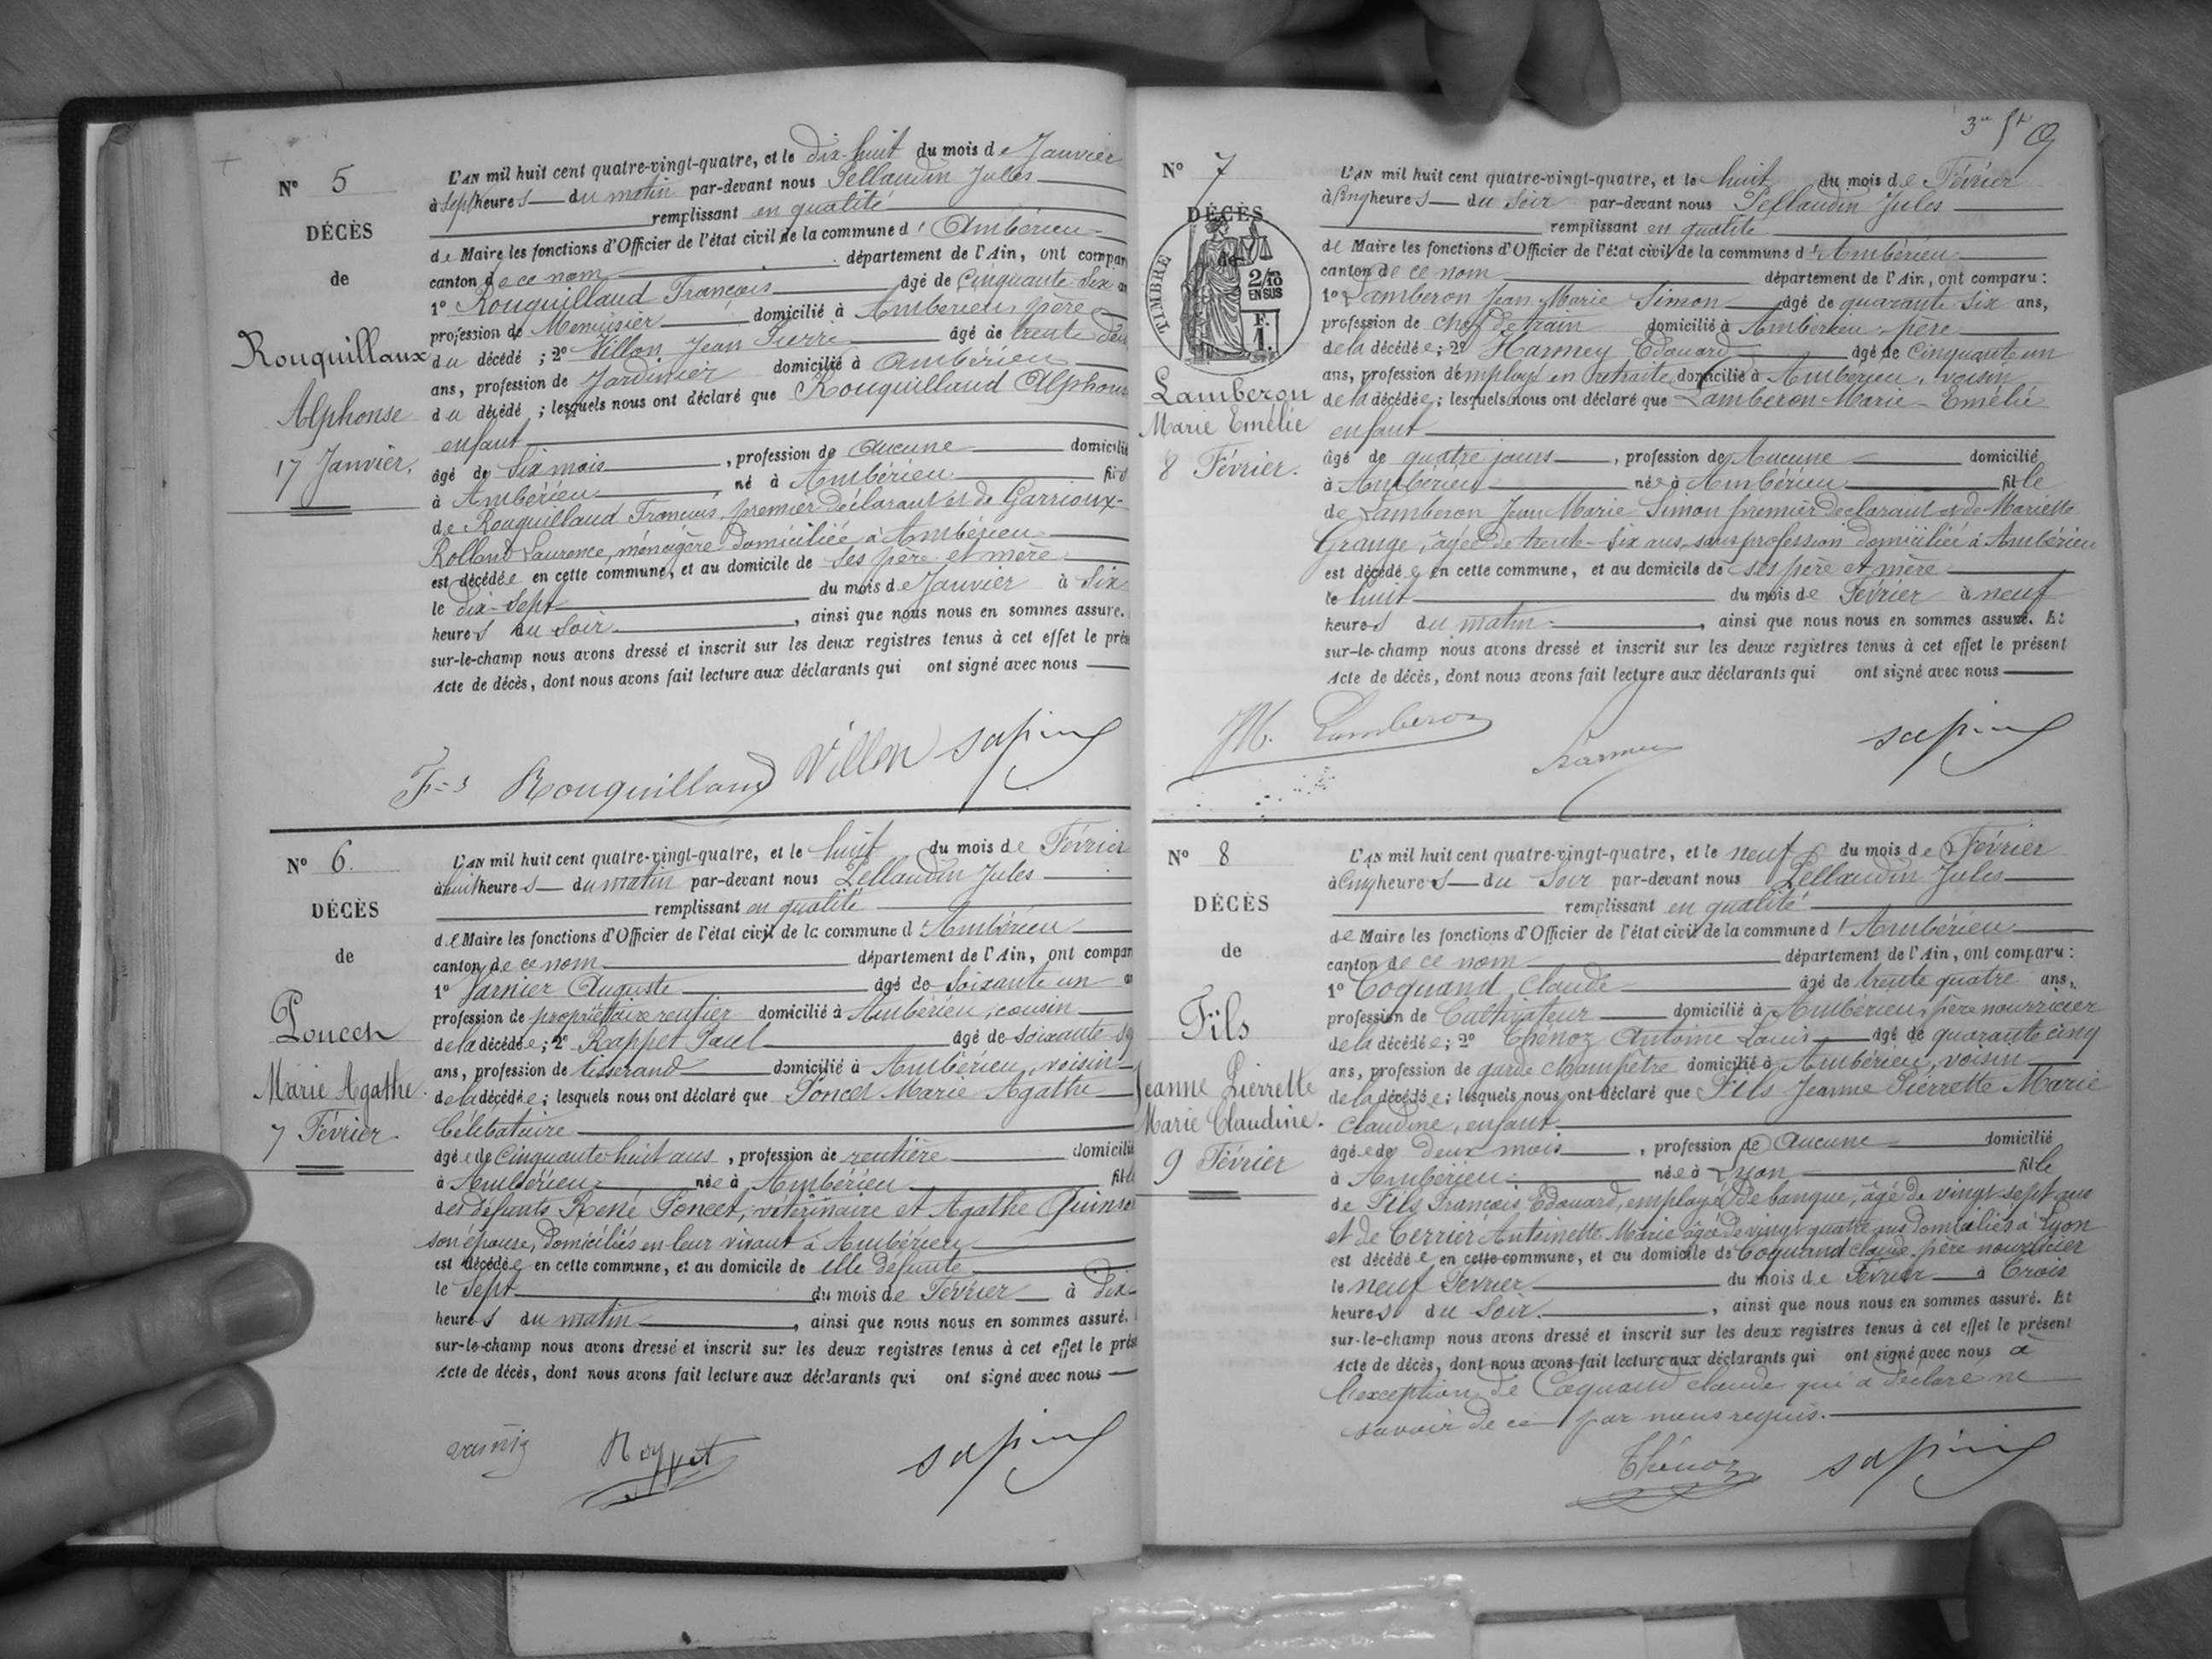 N° 5
DÉCÈS
de
Rouquillaux
Alphonse
17 Janvier.
L'AN mil huit cent quatre-vingt-quatre, et le dix-huit du mois de Janvier
à sept heures du matin par-devant nous Jules
remplissant en qualité
de Maire les fonctions d'Officier de l'état civil de la commune d'Ambérieu
canton de ce nom département de l'Ain, ont compar
1° Rouquillaud François âgé de Cinquante-Six
profession de Menuisier domicilié à Ambérieu, père
du décédé ; 2° Villon Jean Pierre âgé de trente
ans, profession de Jardinier domicilié à Ambérieu
du décédé ; lesquels nous ont déclaré que Rouquillaud Alphons
enfant
âgé de Six mois, profession de Aucune domicilié
à Ambérieu, né à Ambérieu fils
de Rouquillaud François, premier déclarant et de Garrioux
Rolland Laurence, ménagère domiciliée à Ambérieu
est décédée en cette commune, et au domicile de ses père et mère
le dix-sept du mois de Janvier à Six
heures du soir, ainsi que nous nous en sommes assuré.
sur-le-champ nous avons dressé et inscrit sur les deux registres tenus à cet effet le prés
Acte de décès, dont nous avons fait lecture aux déclarants qui ont signé avec nous
F=s Rouquillaud Villon
N° 6.
DÉCÈS
de
Poncet
Marie Agathe.
7 Février.
L'AN mil huit cent quatre-vingt-quatre, et le huit du mois de Février
à huit heures du matin par-devant nous Jules
remplissant en qualité
de Maire les fonctions d'Officier de l'état civil de la commune d'Ambérieu
canton de ce nom département de l'Ain, ont compar
1° Varnier Auguste âgé de Soixante un
profession de propriétaire rentier domicilié à Ambérieu, cousin
de la décédée ; 2° Rappet Paul âgé de soixante
ans, profession de tisserand domicilié à Ambérieu, voisin
de la décédée ; lesquels nous ont déclaré que Poncet Marie Agathe
Célibataire
âgée de Cinquante huit ans, profession de rentière domicilié
à Ambérieu née à Ambérieu fille
des défunts René Poncet, vétérinaire et Agathe Quinso
son épouse, domiciliés en leur vivant à Ambérieu
est décédée en cette commune, et au domicile de elle défunte
le Sept du mois de Février à Dix
heures du matin, ainsi que nous nous en sommes assuré.
sur-le-champ nous avons dressé et inscrit sur les deux registres tenus à cet effet le prés
Acte de décès, dont nous avons fait lecture aux déclarants qui ont signé avec nous
Rappet
N° 7
DÉCÈS
de
TIMBRE
2/10
EN SUS
F.
1.
Lamberon
Marie Emélie
8 Février.
L'AN mil huit cent quatre-vingt-quatre, et le huit du mois de Février
à Cinq heures du Soir par-devant nous Jules
remplissant en qualité
de Maire les fonctions d'Officier de l'état civil de la commune d'Ambérieu
canton de ce nom département de l'Ain, ont comparu :
1° Lamberon Jean Marie Simon âgé de quarante Six ans,
profession de chef de train domicilié à Ambérieu, père
de la décédée ; 2° Harmey Edouard âgé de Cinquante un
ans, profession d'employé en retraite domicilié à Ambérieu, voisin
de la décédée ; lesquels nous ont déclaré que Lamberon Marie-Emélie
enfant
âgé de quatre jours, profession de Aucune domicilié
à Ambérieu née à Ambérieu fille
de Lamberon Jean Marie Simon premier déclarant et de Mariette
Grange, âgée de trente-six ans, sans profession domiciliée à Ambérieu
est décédée en cette commune, et au domicile de ses père et mère
le huit du mois de Février à neuf
heures du matin, ainsi que nous nous en sommes assuré. Et
sur-le-champ nous avons dressé et inscrit sur les deux registres tenus à cet effet le présent
Acte de décès, dont nous avons fait lecture aux déclarants qui ont signé avec nous
Lamberon
N° 8
DÉCÈS
de
Fils
Jeanne Pierrette
Marie Claudine.
9 Février
L'AN mil huit cent quatre-vingt-quatre, et le neuf du mois de Février
à Cinq heures du Soir par-devant nous Jules
remplissant en qualité
de Maire les fonctions d'Officier de l'état civil de la commune d'Ambérieu
canton de ce nom département de l'Ain, ont comparu :
1° Coquand Claude âgé de trente quatre ans,
profession de Cultivateur domicilié à Ambérieu, père nourricier
de la décédée ; 2° Thénoz Antoine Louis âgé de quarante cinq
ans, profession de garde champêtre domicilié à Ambérieu, voisin
de la décédée ; lesquels nous ont déclaré que Fils Jeanne Pierrette Marie
Claudine, enfant
âgée de deux mois, profession de Aucune domicilié
à Ambérieu née à Lyon fille
de Fils François Edouard, employé de banque, âgé de vingt-sept ans
et de Cerrier Antoinette Marie âgée de vingt quatre ans domiciliés à Lyon
est décédée en cette commune, et au domicile de Coquand Claude père nourricier
le neuf Février du mois de Février à Trois
heures du Soir, ainsi que nous nous en sommes assuré. Et
sur-le-champ nous avons dressé et inscrit sur les deux registres tenus à cet effet le présent
Acte de décès, dont nous avons fait lecture aux déclarants qui ont signé avec nous à
l'exception de Coquand Claude qui a déclaré ne
savoir de ce par nous requis.
Thénoz